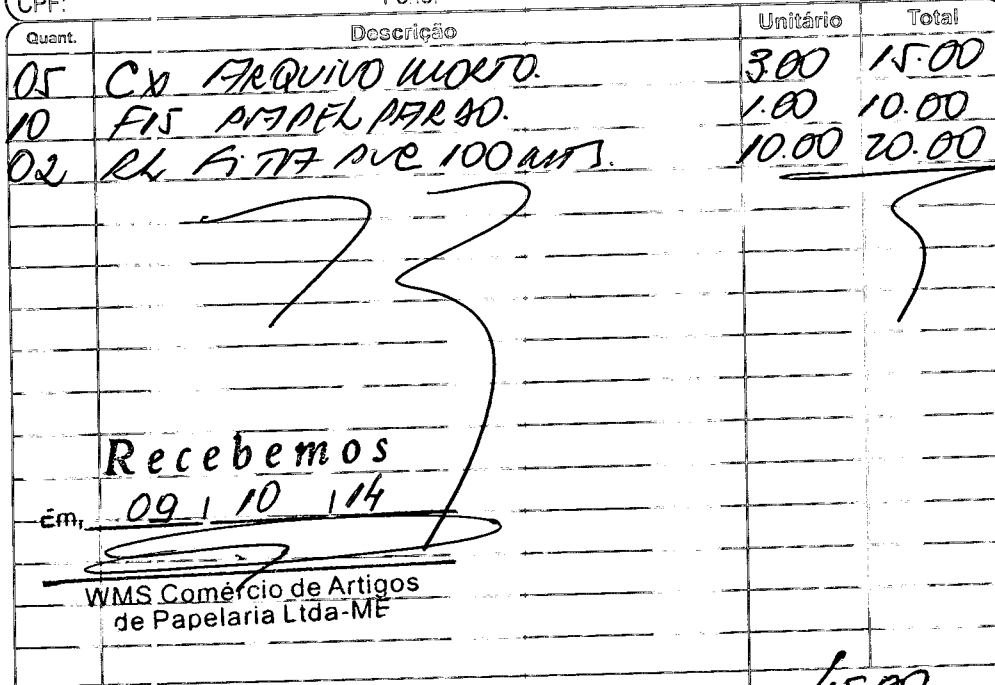 CPF:
Quant. Descrição Unitário Total
05 CX ARQUIVO MORTO. 3.00 15.00
10 Fls PAPEL PARDO. 1.00 10.00
02 RL FITA PVC 100 mts. 10.00 20.00
Recebemos
Em, 09 / 10 / 14
WMS Comércio de Artigos
de Papelaria Ltda-ME